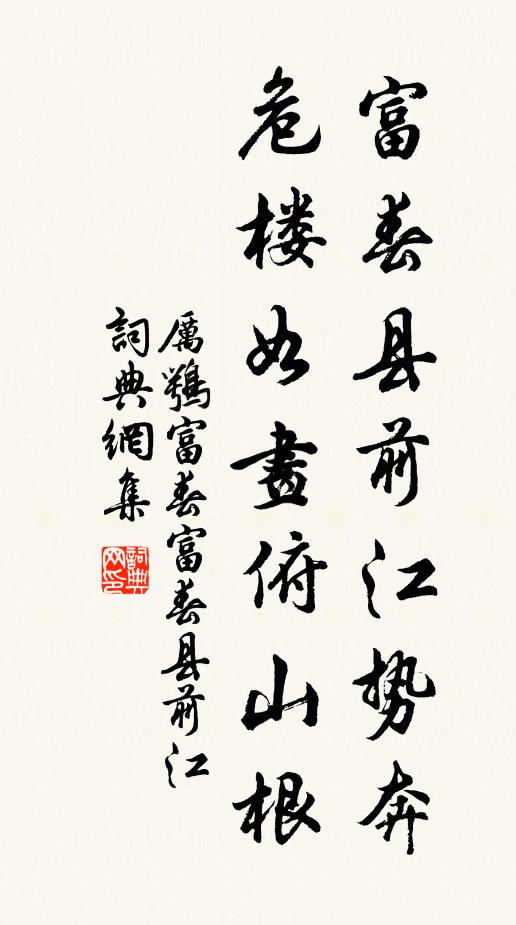 富春县前江势奔
危楼如畫俯山根
厲鶚富春富春县前江
詞典網集
詞典网印